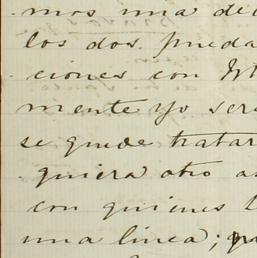 mos una de
los dos pueda
ciones con
mente yo ser
se quede tratar
quiera otro a
con quienes l
una linea;